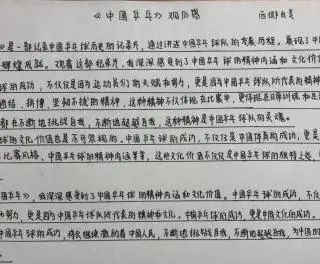 《中国乒乓》观后感
是一部记录中国乒乓球历史的记录片，通过讲述中国乒乓球队的发展历程，展现了中
辉煌成就。观看这部纪录片，我深深感受到了中国乒乓球的精神内涵和文化价值
球的成功，不仅仅是因为运动员们的天赋和努力，更是因为中国乒乓球队所代表的精神
团结、拼搏、坚韧不拔的精神，这种精神不仅体现在比赛中，更体现在日常训练和生活
都在不断地挑战自我，不断地超越自我，这种精神是中国乒乓球队的灵魂。
球的文化价值也是不可忽视的。中国乒乓球的成功，不仅仅是中国体育的成功，更是
比赛风格、中国乒乓球的精神内涵等等，这些文化价值不仅仅是中国乒乓球的独特之处
乒乓》，我深深感受到了中国乒乓球的精神内涵和文化价值。中国乒乓球的成功，不仅
和努力，更是因为中国乒乓球队所代表的精神和文化。中国乒乓球的成功，更是中国文化的成功。
中国乒乓球的成功，将会继续激励着中国人民，不断地挑战自我，不断地超越自我，为中国的